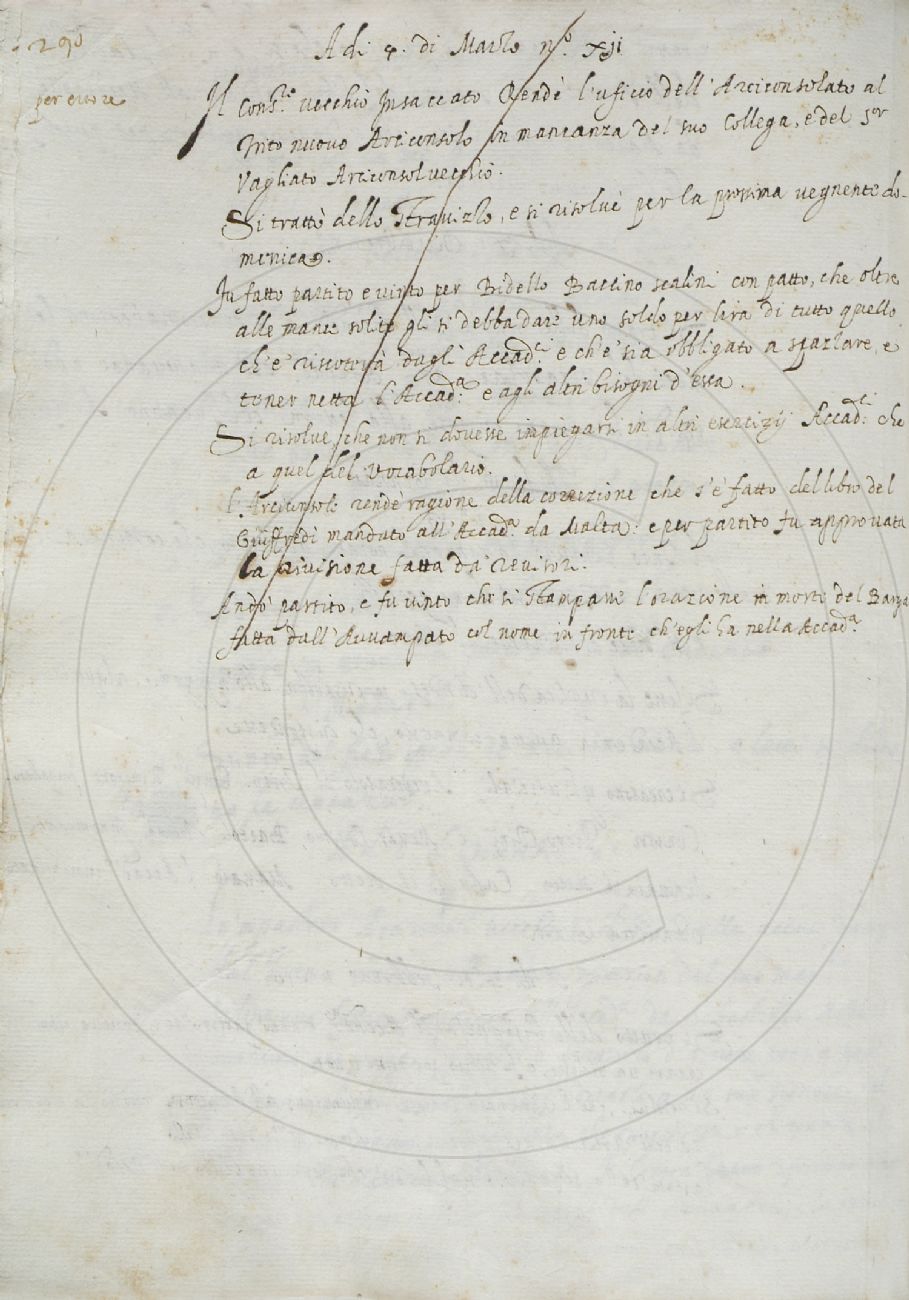 290
per errore
Adi 4. di Marzo n.o xiji
Il Cons.re vecchio Insaccato Rendè l'uficio dell'Arciconsolato al
Trito nuovo Arciconsolo in mancanza del suo Collega, e del S.or
Vagliato Arciconsol vecchio.
Si trattò dello Stravizlo, e si risolvè per la prossima vegnente do-
menica.
Fu fatto partito e vinto per Bidello Battino Scalini con patto, che oltre
alle mance solite gli si debba dare uno soldo per lira di tutto quello
ch'e' riscoterà dagli Accad.i e ch'e' sia obbligato a spazlare, e
tener netta l'Accad.a e agli altri bisogni d'essa.
Si risolve che non si dovesse impiegarsi in altri esercizij Accad.i che
a quel del Vocabolario.
L'Arciconsolo rendè ragione della correzione che s'è fatto del libro del
Giuffredi mandato all'Accad.a da Malta: e per partito fu approvata
la rivisione fatta da' revisori.
Andò partito, e fu vinto che si Stampasse l'orazione in morte del Barga
fatta dall'Avvampato col nome in fronte ch'egli ha nella Accad.a